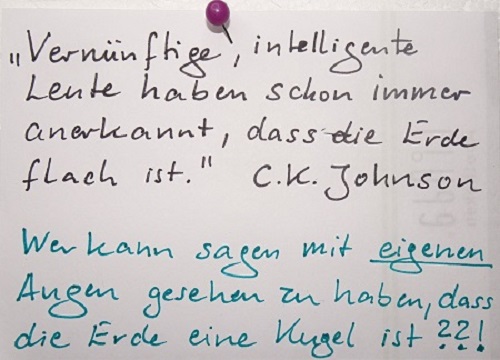 „Vernünftige, intelligente
Leute haben schon immer
anerkannt, dass die Erde
flach ist." C.K. Johnson
Wer kann sagen mit eigenen
Augen gesehen zu haben, dass
die Erde eine Kugel ist ??!